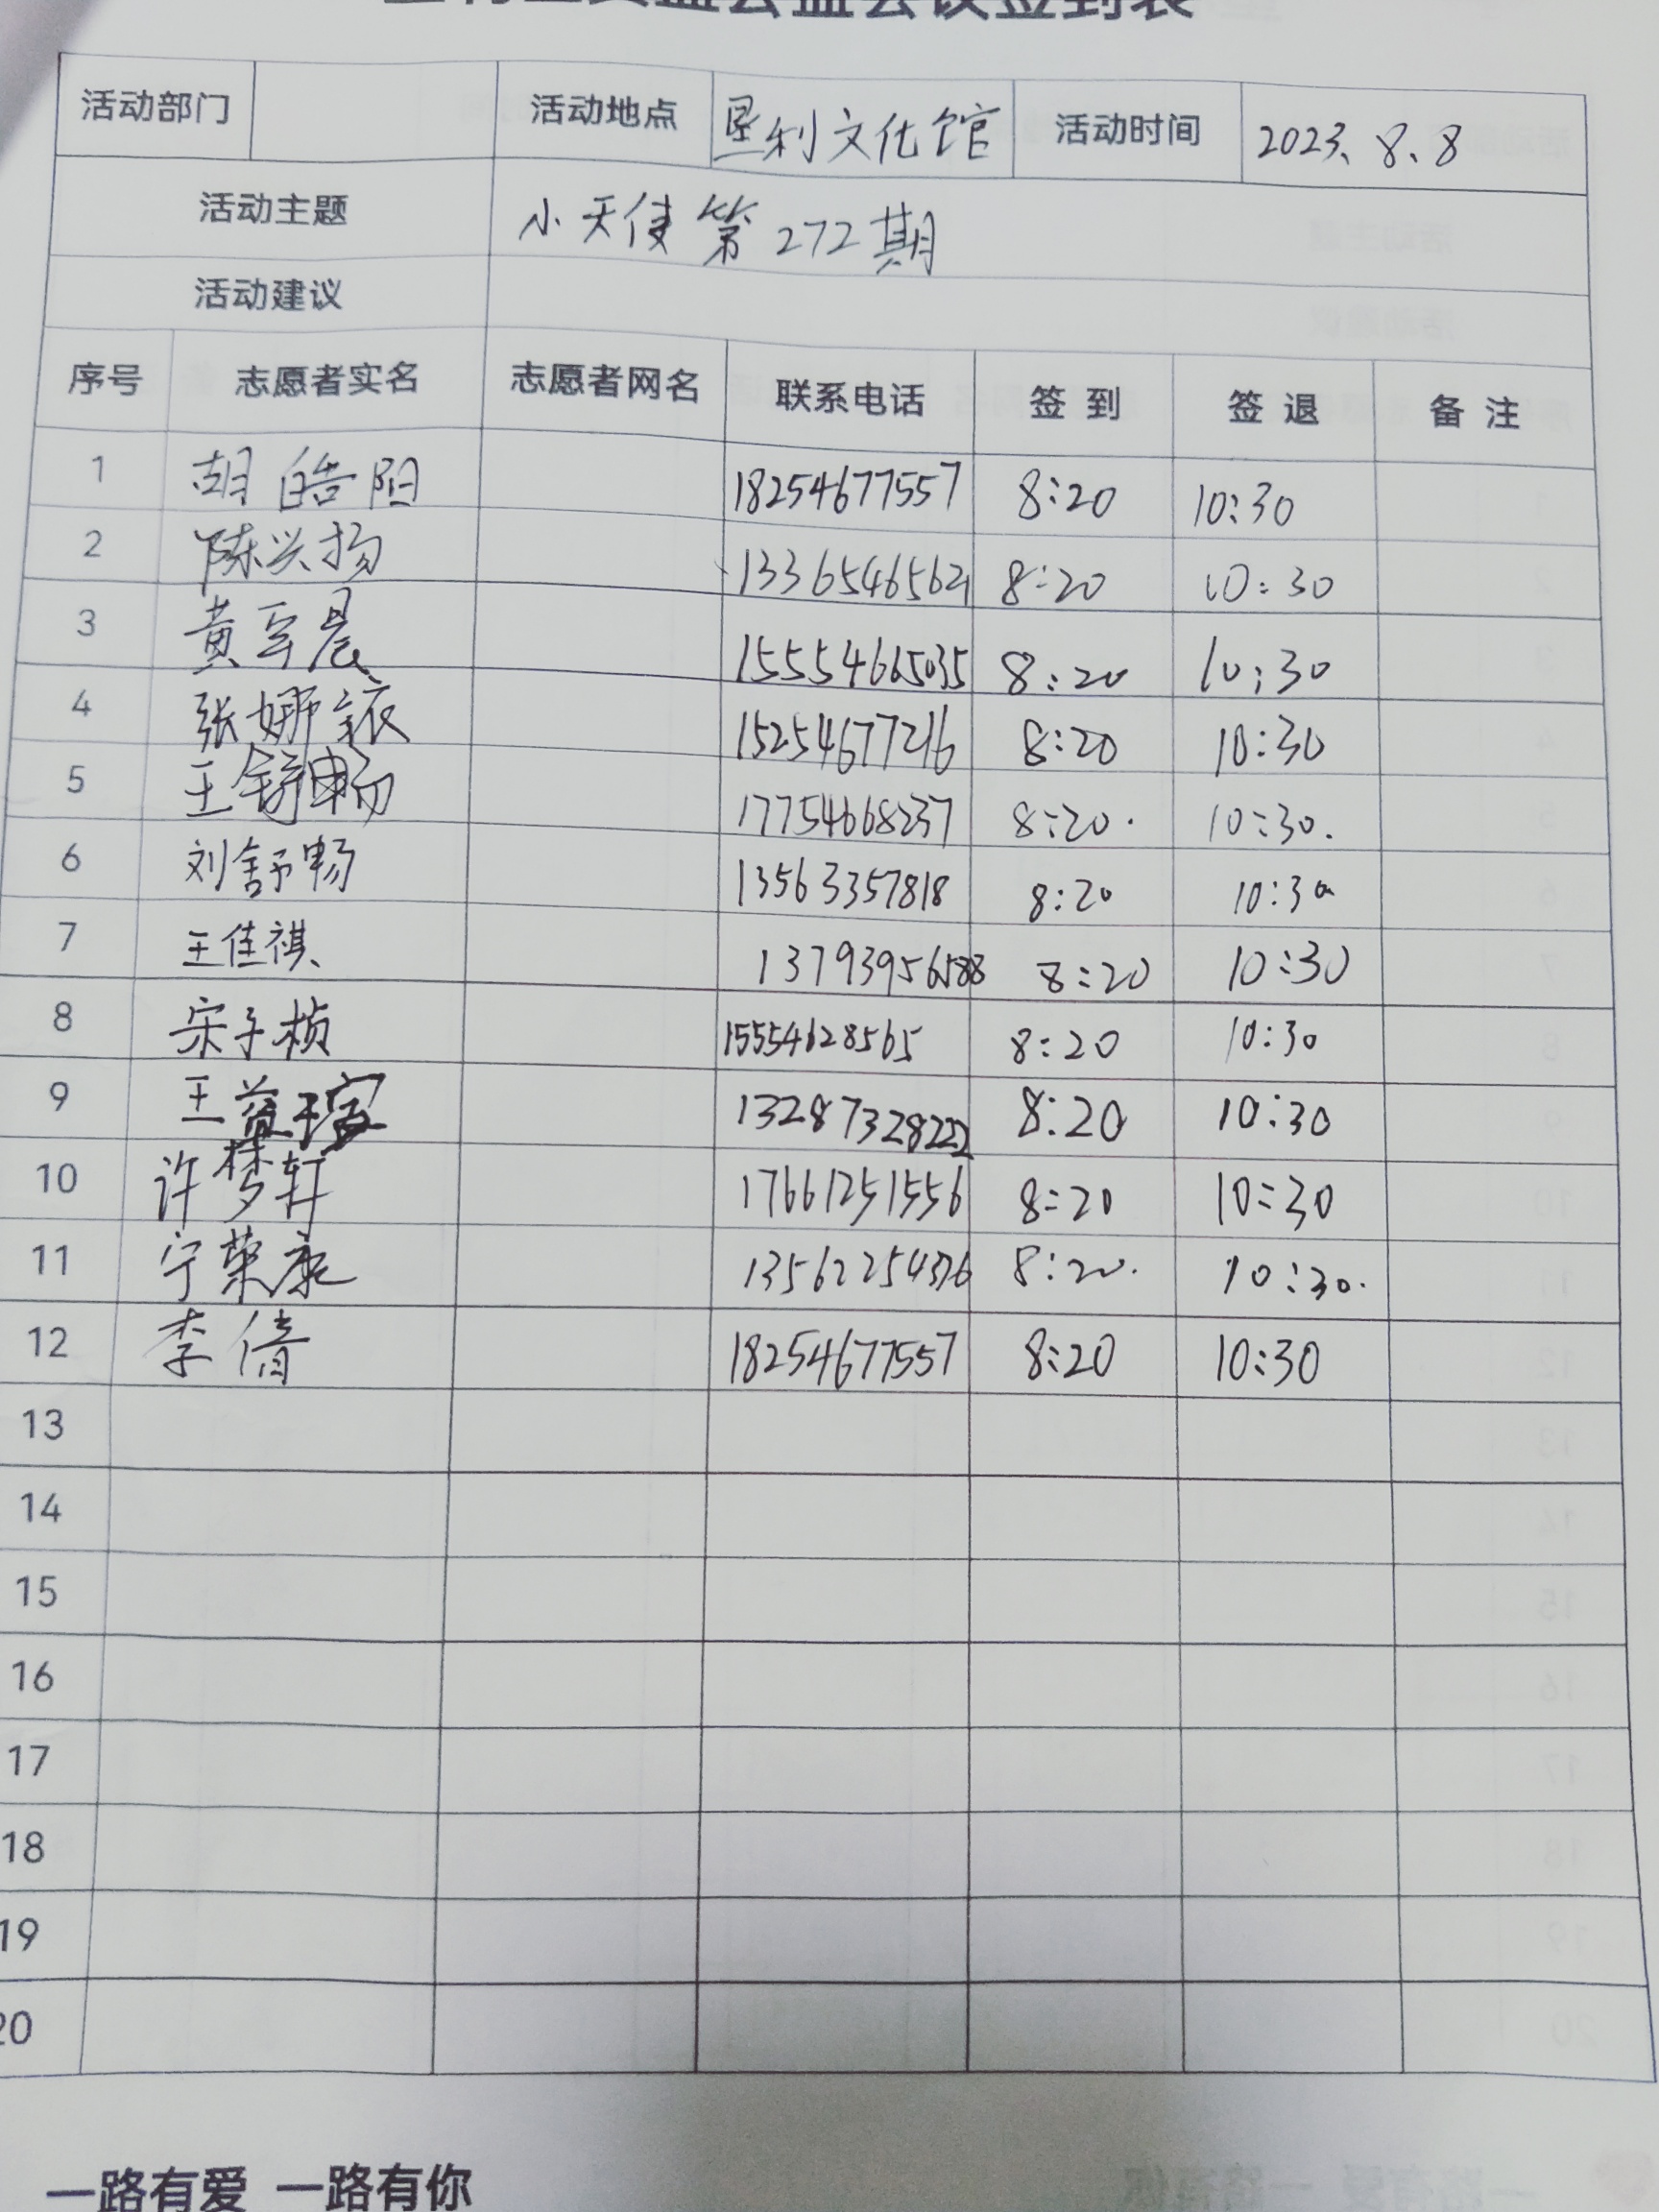 活动部门 活动地点 垦利文化馆 活动时间 2023、8、8
活动主题 小天使第272期
活动建议
序号 志愿者实名 志愿者网名 联系电话 签到 签退 备注
1 胡皓阳 18254677557 8:20 10:30
2 陈兴扬 13365465621 8:20 10:30
3 黄至晨 15554665035 8:20 10:30
4 张娜 15254677216 8:20 10:30
5 王舒畅 17754668237 8:20. 10:30.
6 刘舒畅 13563357818 8:20 10:30
7 王佳祺、 13793956588 8:20 10:30
8 宋子桢 15554628565 8:20 10:30
9 王益 13287328222 8:20 10:30
10 许梦轩 17661251556 8:20 10:30
11 宁荣康 13562254376 8:20. 10:30.
12 李倩 18254677557 8:20 10:30
13
14
15
16
17
18
19
20
一路有爱 一路有你